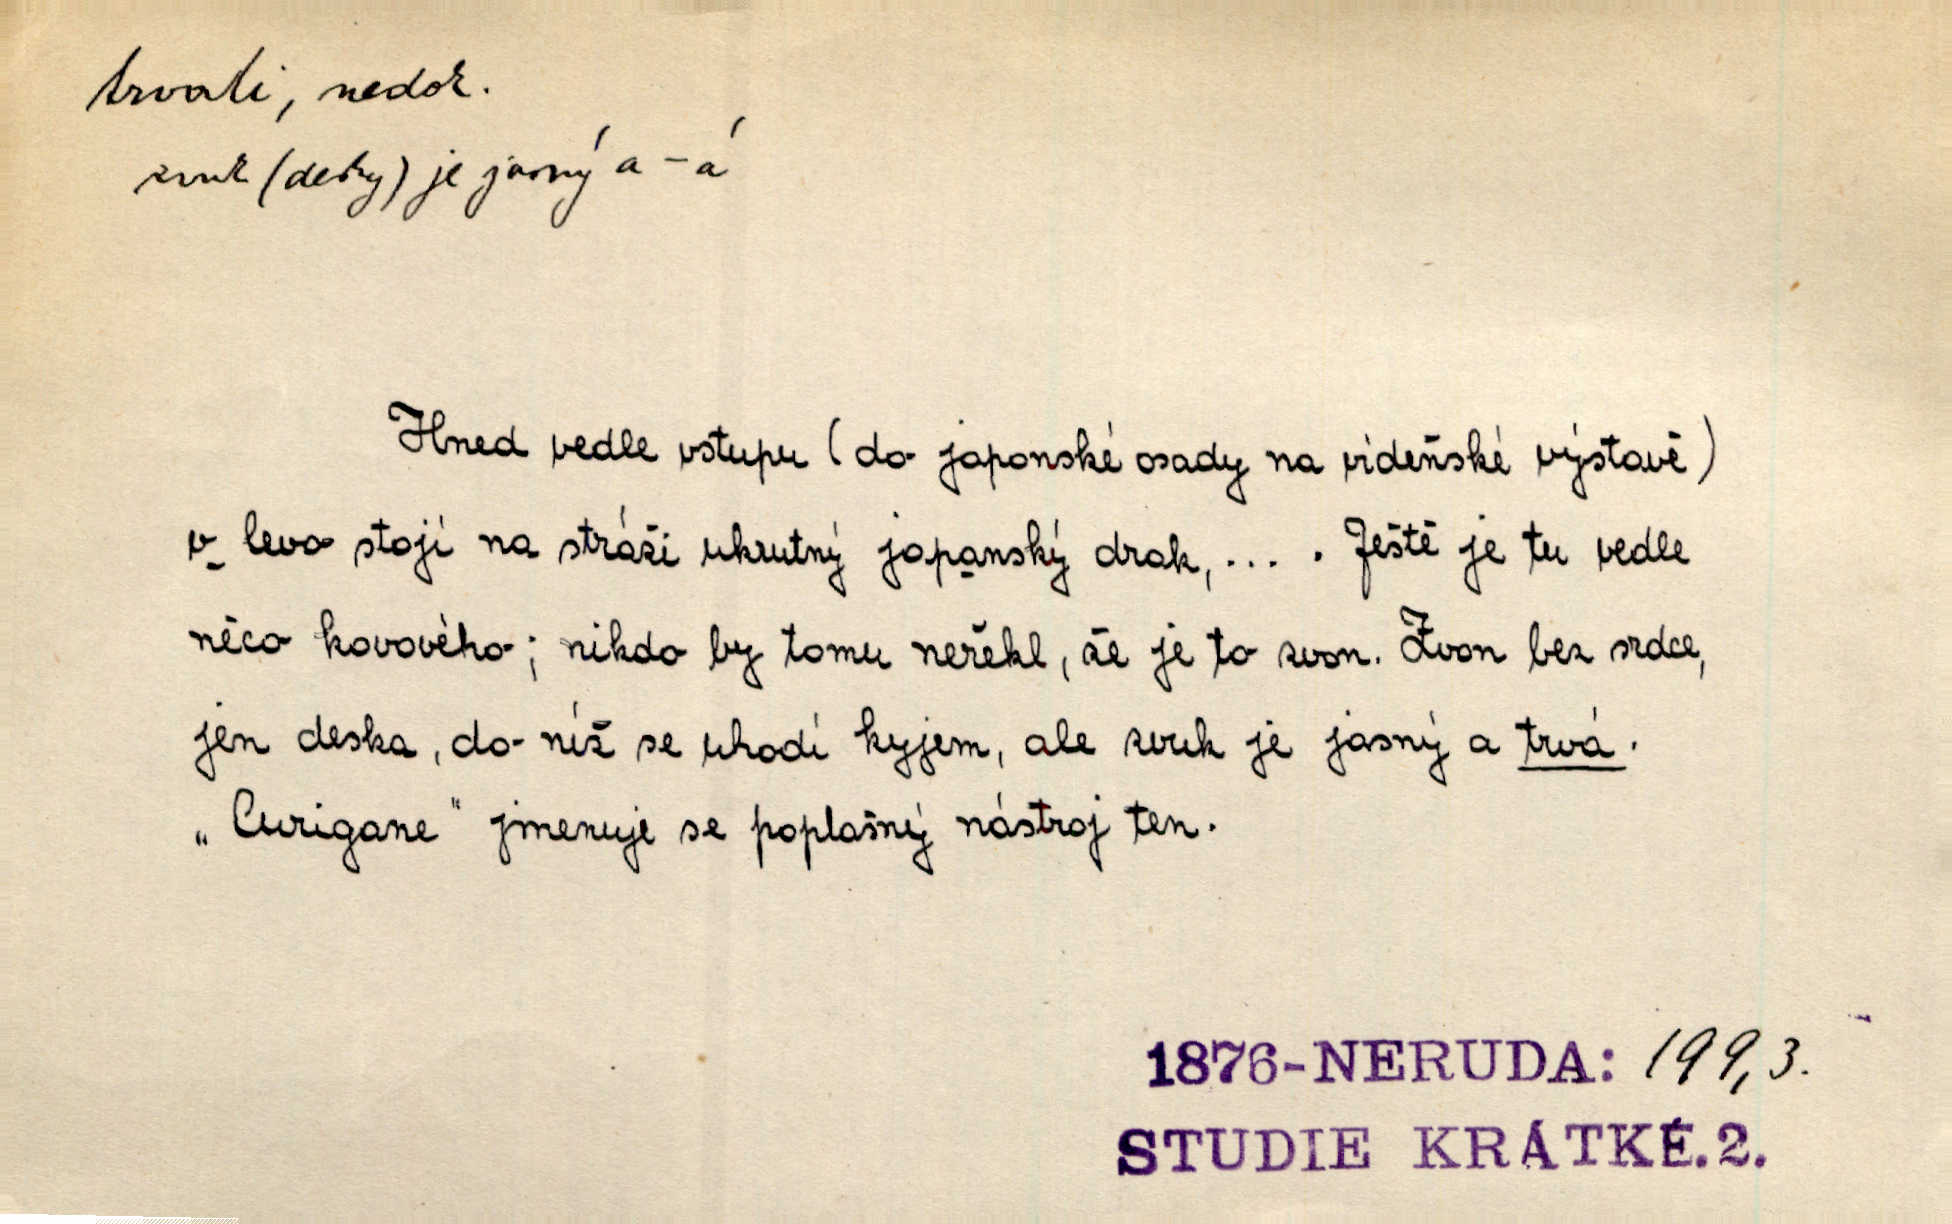 trvati, nedok.
zvuk (desky) je jasný a – á
Hned vedle vstupu (do japonské osady na vídeňské výstavě)
v levo stojí na stráži ukrutný japanský drak, ... . Ještě je tu vedle
něco kovového; nikdo by tomu neřekl, že je to zvon. Zvon bez srdce,
jen deska, do níž se uhodí kyjem, ale zvuk je jasný a trvá.
„Curigane" jmenuje se poplašný nástroj ten.
1876-NERUDA: 199,3.
STUDIE KRÁTKÉ.2.